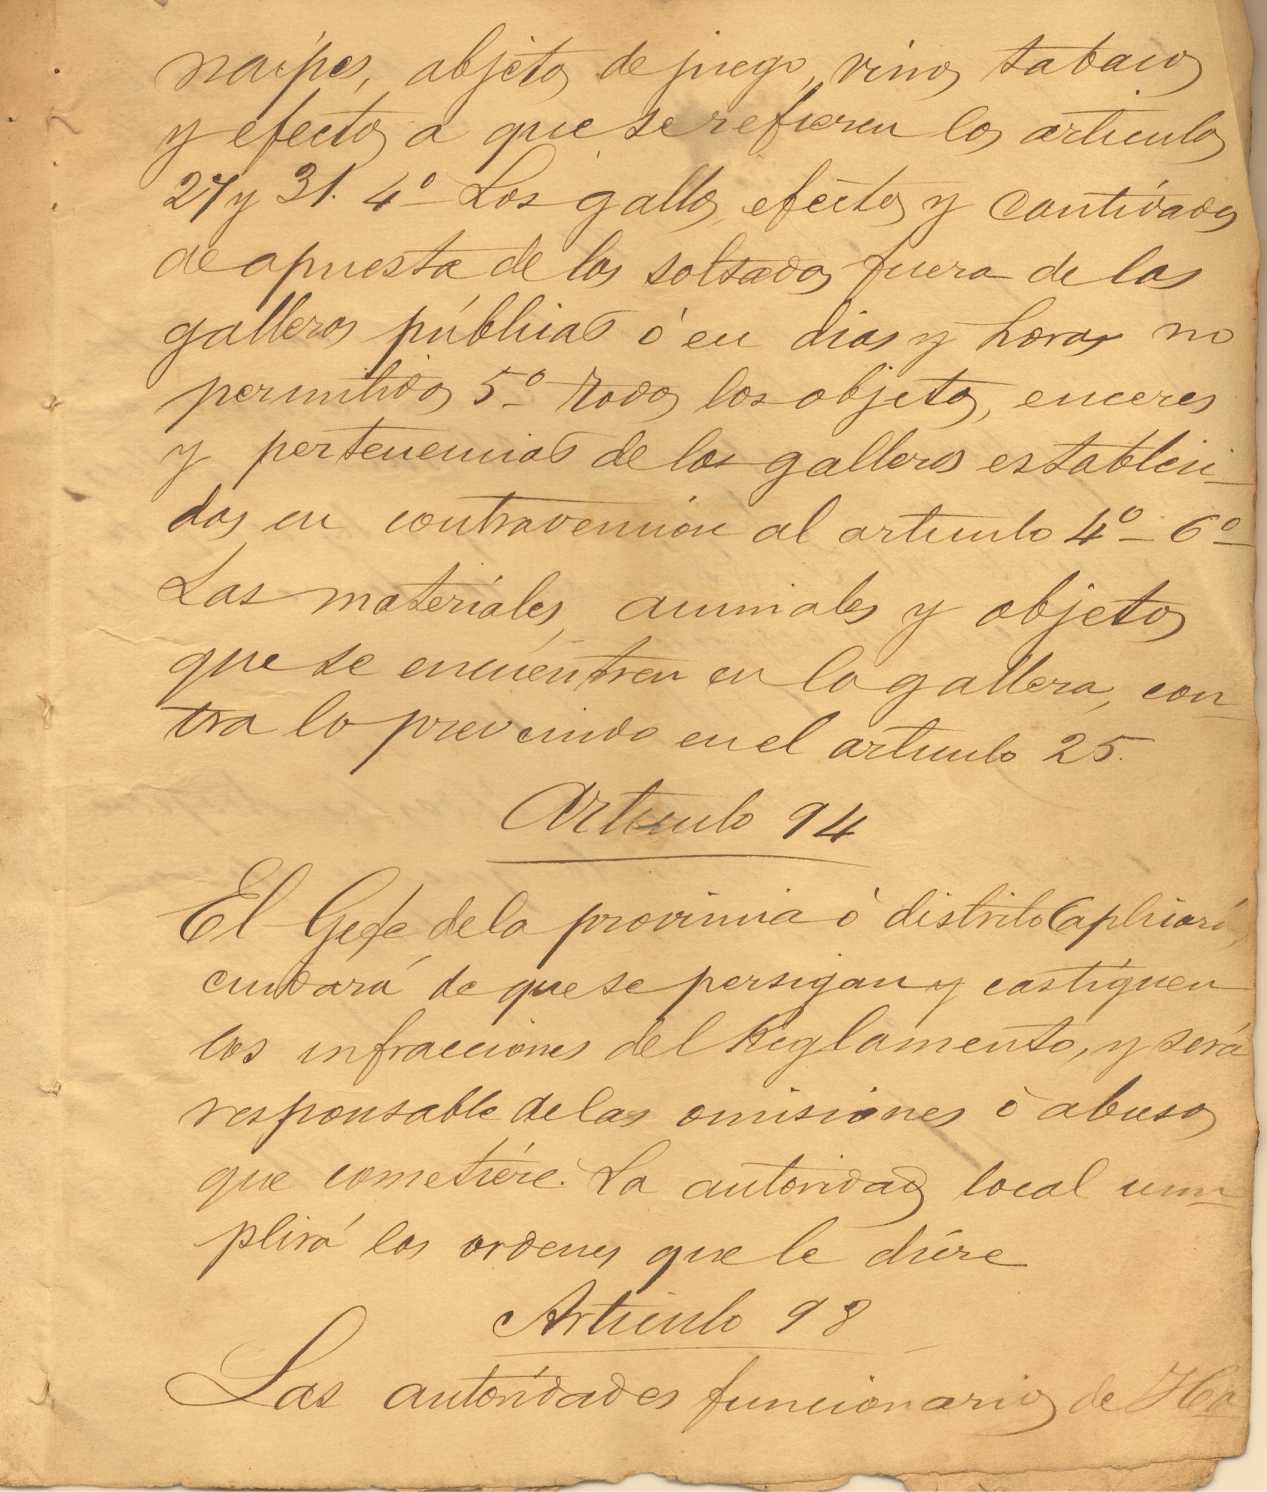 naipes, objetos de juego, vinos tabacos
y efectos a que se refieren los articulos
27 y 31. 4º Los gallos, efectos y cantidades
de apuesta de las soltadas fuera de las
galleras públicas ó en dias y horas no
permitidos 5º Todos los objetos, enceres
y pertenencias de las galleras estableci-
das en contravencion al articulo 4º 6º
Los materiales, animales y objetos
que se encuentren en la gallera, con-
tra lo prevenido en el articulo 25.
Articulo 94
El Gefe de la provincia ó distrito aplicará,
cuidará de que se persigan y castiguen
las infracciones del Reglamento, y será
responsable de las omisiones ó abusos
que cometiére. La autoridad local cum-
plirá las ordenes que le diére
Articulo 98
Las autoridades funcionarios de Ha